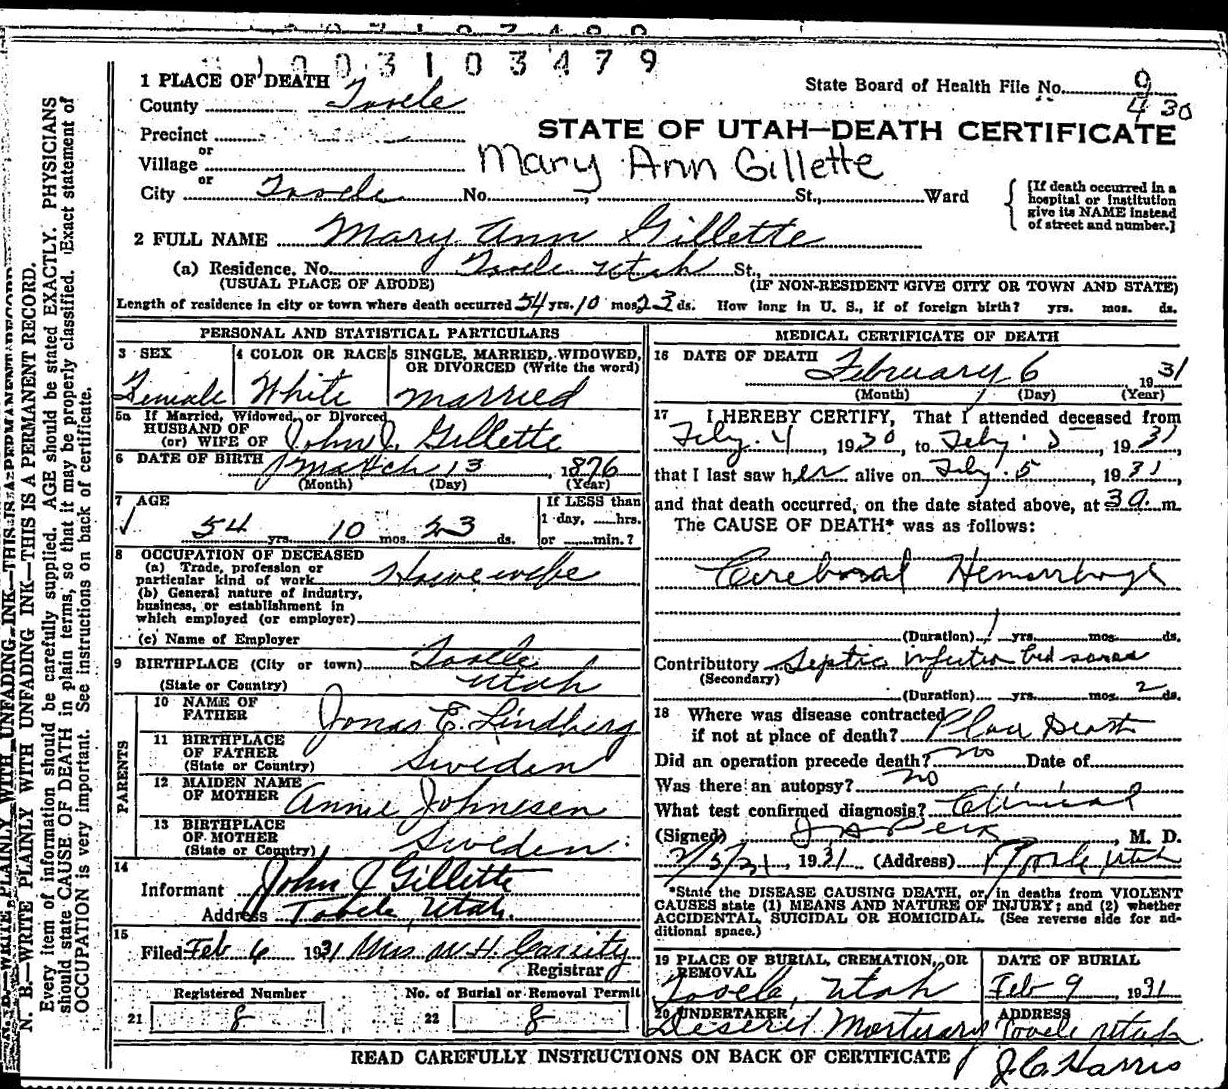 1003103479
1 PLACE OF DEATH
State Board of Health File No. 9
County Tooele
430
Precinct
STATE OF UTAH—DEATH CERTIFICATE
or
Village
Mary Ann Gillette
or
City Tooele No. St., Ward
[If death occurred in a hospital or institution give its NAME instead of street and number.]
2 FULL NAME Mary Ann Gillette
(a) Residence, No. Tooele Utah St.,
(USUAL PLACE OF ABODE) (IF NON-RESIDENT GIVE CITY OR TOWN AND STATE)
Length of residence in city or town where death occurred 54 yrs. 10 mos. 23 ds. How long in U. S., if of foreign birth? yrs. mos. ds.
PERSONAL AND STATISTICAL PARTICULARS
3 SEX 4 COLOR OR RACE 5 SINGLE, MARRIED, WIDOWED,
OR DIVORCED (Write the word)
Female White Married
5a If Married, Widowed, or Divorced
HUSBAND OF
(or) WIFE OF John J. Gillette
6 DATE OF BIRTH March 13 1876
(Month) (Day) (Year)
7 AGE If LESS than
54 yrs. 10 mos. 23 ds. 1 day, hrs.
or min.?
8 OCCUPATION OF DECEASED
(a) Trade, profession or
particular kind of work Housewife
(b) General nature of industry,
business, or establishment in
which employed (or employer)
(c) Name of Employer
9 BIRTHPLACE (City or town) Tooele
(State or Country) Utah
PARENTS
10 NAME OF
FATHER Jonas E. Lindberg
11 BIRTHPLACE
OF FATHER
(State or Country) Sweden
12 MAIDEN NAME
OF MOTHER Annie Johnesen
13 BIRTHPLACE
OF MOTHER
(State or Country) Sweden.
14
Informant John J Gillette
Address Tooele, Utah.
15
Filed Feb 6 1931 Mrs W. H. Cassity
Registrar
Registered Number No. of Burial or Removal Permit
21 8 22 8
MEDICAL CERTIFICATE OF DEATH
16 DATE OF DEATH February 6 1931
(Month) (Day) (Year)
17 I HEREBY CERTIFY, That I attended deceased from
Feby. 4, 1930, to Feby. 1931
that I last saw her alive on Feby. 5, 1931,
and that death occurred, on the date stated above, at 3 a. m.
The CAUSE OF DEATH* was as follows:
Cerebral Hemorrhage
(Duration) 1 yrs. mos. ds.
Contributory Septic infection bed sores
(Secondary)
(Duration) yrs. mos. 2 ds.
18 Where was disease contracted
if not at place of death? Place Death
Did an operation precede death? no Date of
Was there an autopsy? no
What test confirmed diagnosis? Clinical
(Signed) J A Peck, M. D.
2/5/31, 1931 (Address) Tooele, Utah
*State the DISEASE CAUSING DEATH, or in deaths from VIOLENT
CAUSES state (1) MEANS AND NATURE OF INJURY; and (2) whether
ACCIDENTAL, SUICIDAL OR HOMICIDAL. (See reverse side for ad-
ditional space.)
19 PLACE OF BURIAL, CREMATION, OR
REMOVAL
Tooele, Utah
DATE OF BURIAL
Feb 9, 1931
20 UNDERTAKER
Deseret Mortuary
ADDRESS
Tooele Utah
READ CAREFULLY INSTRUCTIONS ON BACK OF CERTIFICATE
J. C. Harris
N. B.—WRITE PLAINLY WITH UNFADING INK—THIS IS A PERMANENT RECORD.
Every item of information should be carefully supplied. AGE should be stated EXACTLY. PHYSICIANS
should state CAUSE OF DEATH in plain terms, so that it may be properly classified. Exact statement of
OCCUPATION is very important. See instructions on back of certificate.